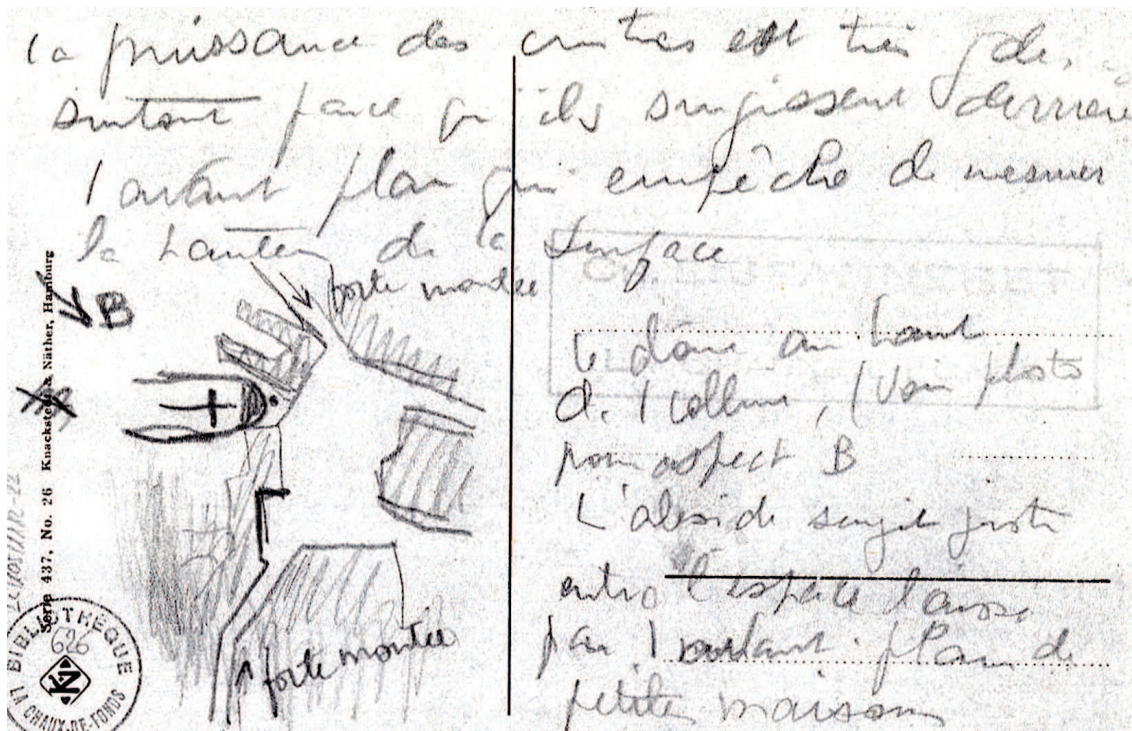 la puissance des centres est très gde,
surtout parce qu'ils surgissent derrière
l'avant plan qui empêche de mesurer
la hauteur de la surface
forte montée
B
le dôme au haut
de l colline, (Voir photo
pour aspect B
L'abside surgit juste
entre l'espace laissé
par l'avant plan de
petites maisons
forte montée
Serie 437. No. 26 Knackstedt & Näther, Hamburg
BIBLIOTHÈQUE
LA CHAUX-DE-FONDS
626
KN